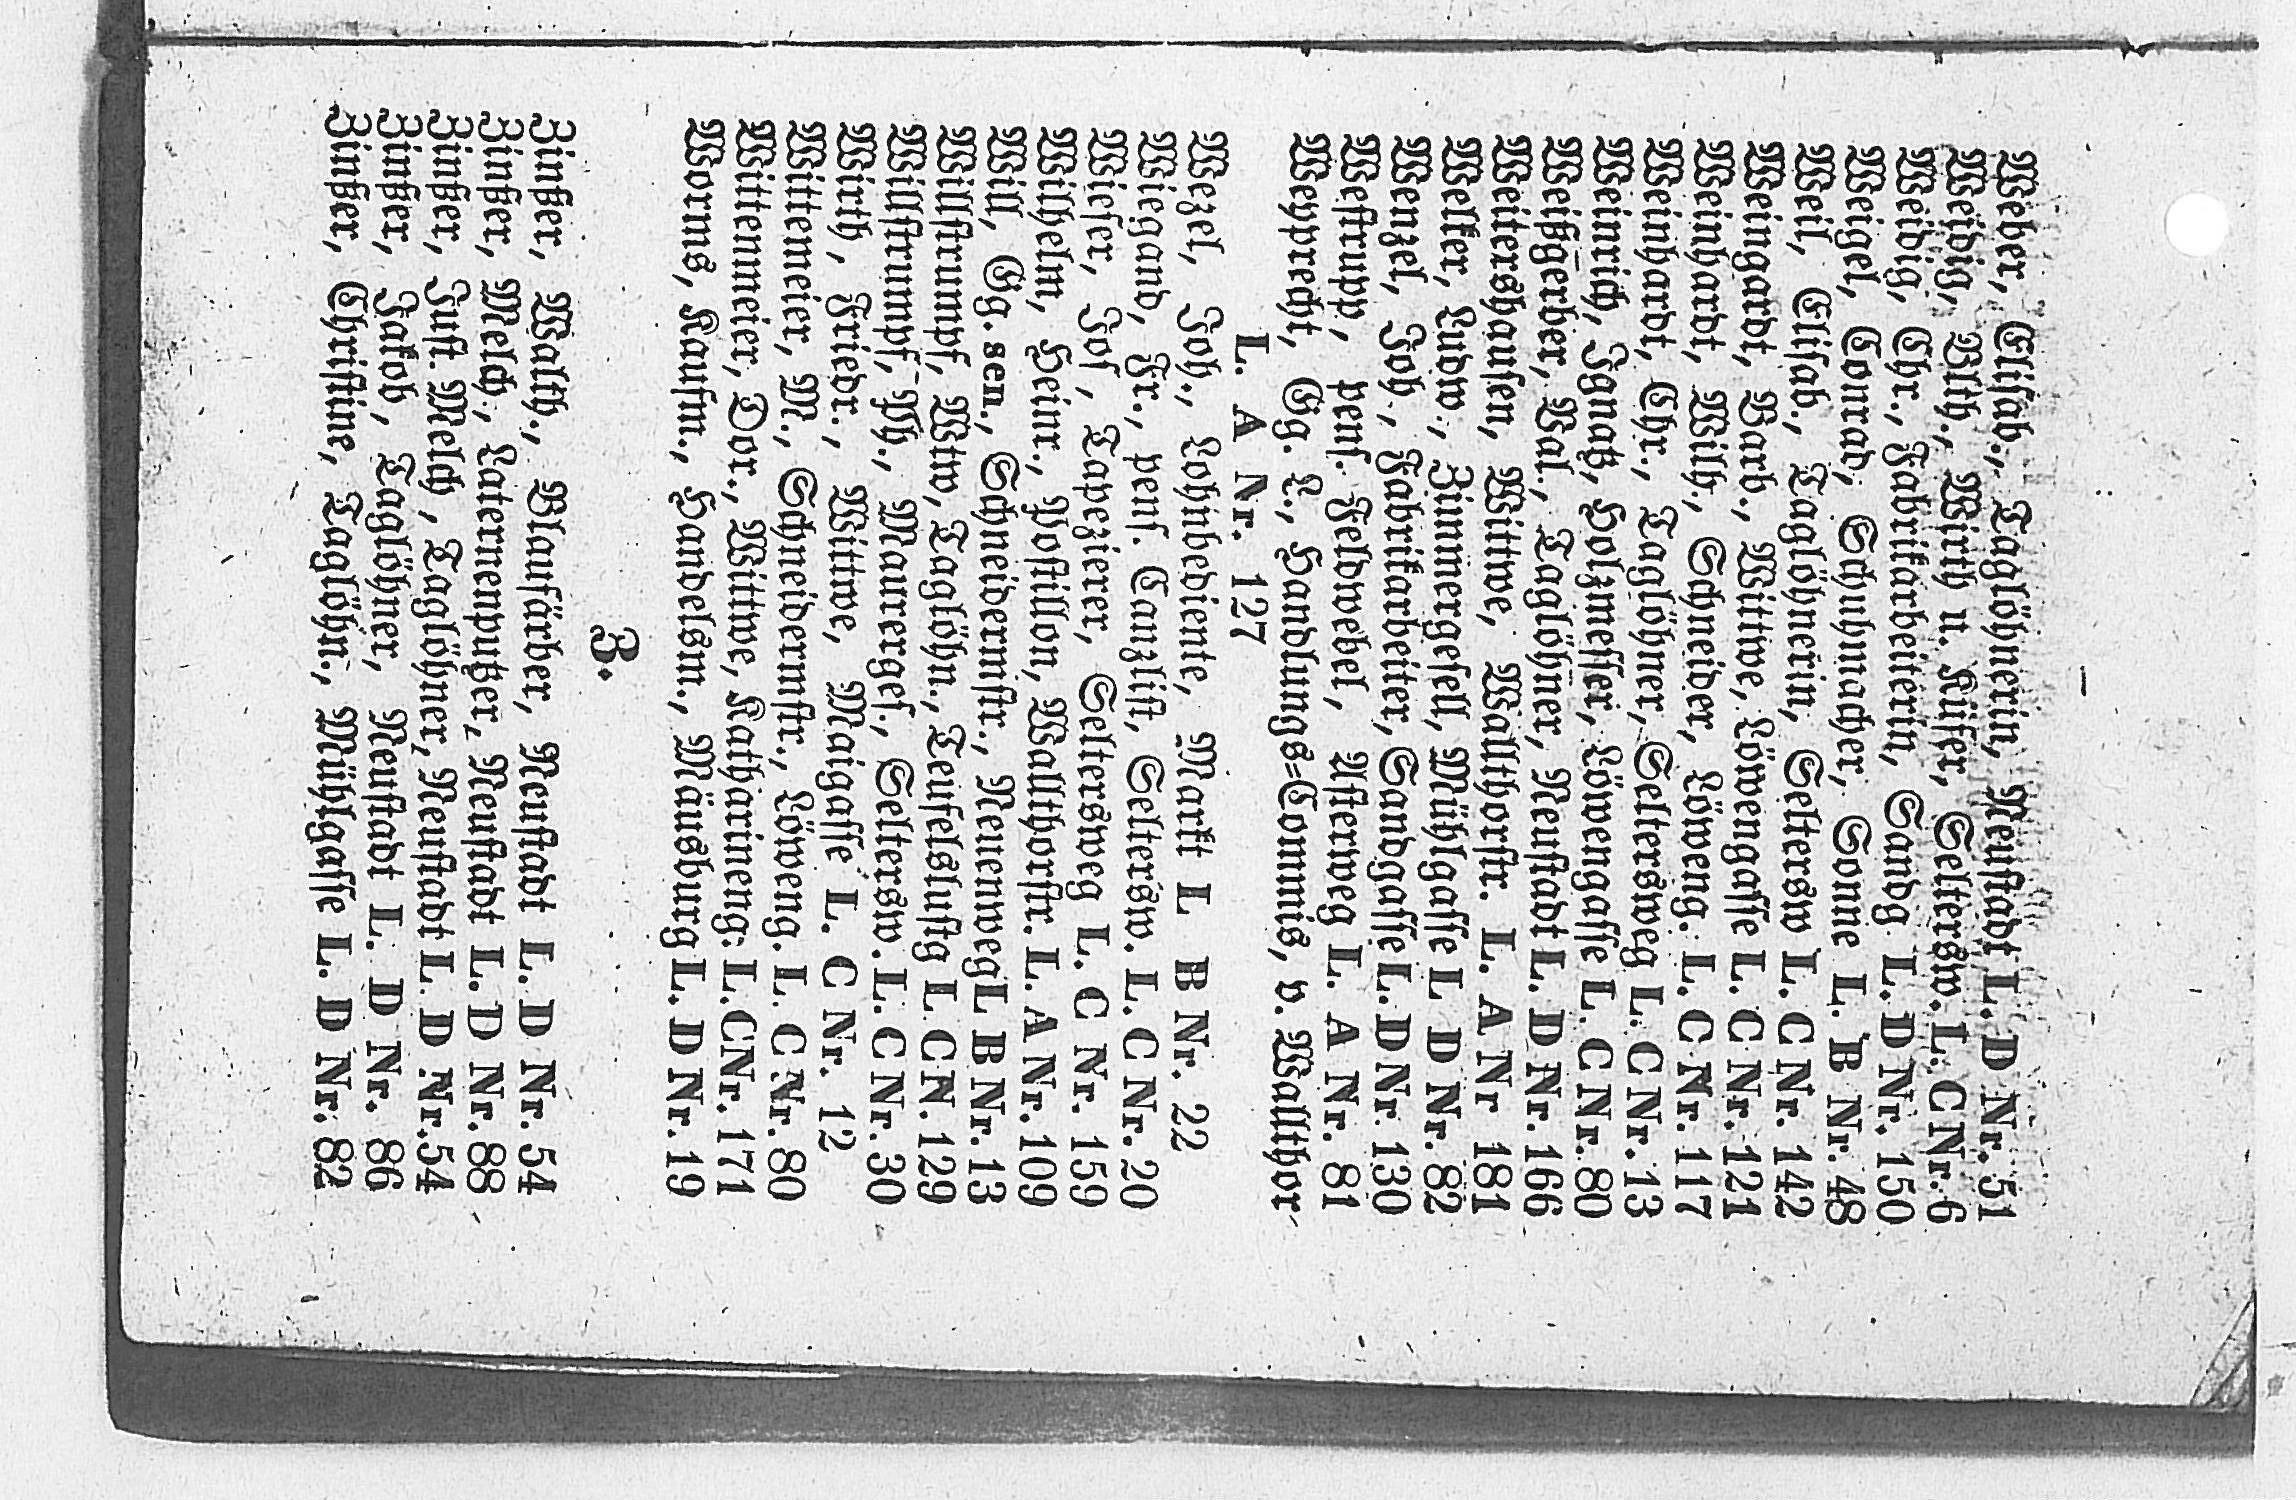 Weber, Elisab., Taglöhnerin, Neustadt L. D Nr. 51
Weidig, Wlh., Wirth u. Küfer, Seltersw. L. C Nr. 6
Weidig, Chr., Fabrikarbeiterin, Sandg L. D Nr. 150
Weigel, Conrad, Schuhmacher, Sonne L. B Nr. 48
Weil, Elisab., Taglöhnerin, Seltersw L. C Nr. 142
Weingardt, Barb., Wittwe, Löwengasse L. C Nr. 121
Weinhardt, Wilh., Schneider, Löweng. L. C Nr. 117
Weinhardt, Chr., Taglöhner, Seltersweg L. C Nr. 13
Weinrich, Ignatz, Holzmesser, Löwengasse L. C Nr. 80
Weißgerber, Val., Taglöhner, Neustadt L. D Nr. 166
Weitershausen, Wittwe, Wallthorstr. L. A Nr 181
Welker, Ludw., Zimmergesell, Mühlgasse L D Nr. 82
Wenzel, Joh., Fabrikarbeiter, Sandgasse L. D Nr. 130
Westrupp, pens. Feldwebel, Asterweg L. A Nr. 81
Weyprecht, Gg. L., Handlungs=Commis, v. Wallthor
L. A Nr. 127
Wezel, Joh., Lohnbediente, Markt L B Nr. 22
Wiegand, Fr., pens. Canzlist, Seltersw. L. C Nr. 20
Wieser, Jos, Tapezierer, Seltersweg L. C Nr. 159
Wilhelm, Heinr., Postillon, Wallthorstr. L. A Nr. 109
Will, Gg. sen., Schneidermstr., Neuenweg L B Nr. 13
Willstrumpf, Wtw, Taglöhn., Teufelslustg L C N. 129
Willstrumpf, Ph., Maurergesl., Seltersw. L. C Nr. 30
Wirth, Friedr., Wittwe, Maigasse L. C Nr. 12
Wittemeier, M., Schneidermstr., Löweng. L. C Nr. 80
Wittenmeier, Dor., Wittwe, Katharineng. L. C Nr. 171
Worms, Kaufm., Handelsm., Mäusburg L. D Nr. 19
Z.
Zinßer, Walth., Blaufärber, Neustadt L. D Nr. 54
Zinßer, Melch., Laternenputzer, Neustadt L. D Nr. 88
Zinßer, Just. Melch, Taglöhner, Neustadt L. D Nr. 54
Zinßer, Jakob, Taglöhner, Neustadt L. D Nr. 86
Zinßer, Christine, Taglöhn., Mühlgasse L. D Nr. 82